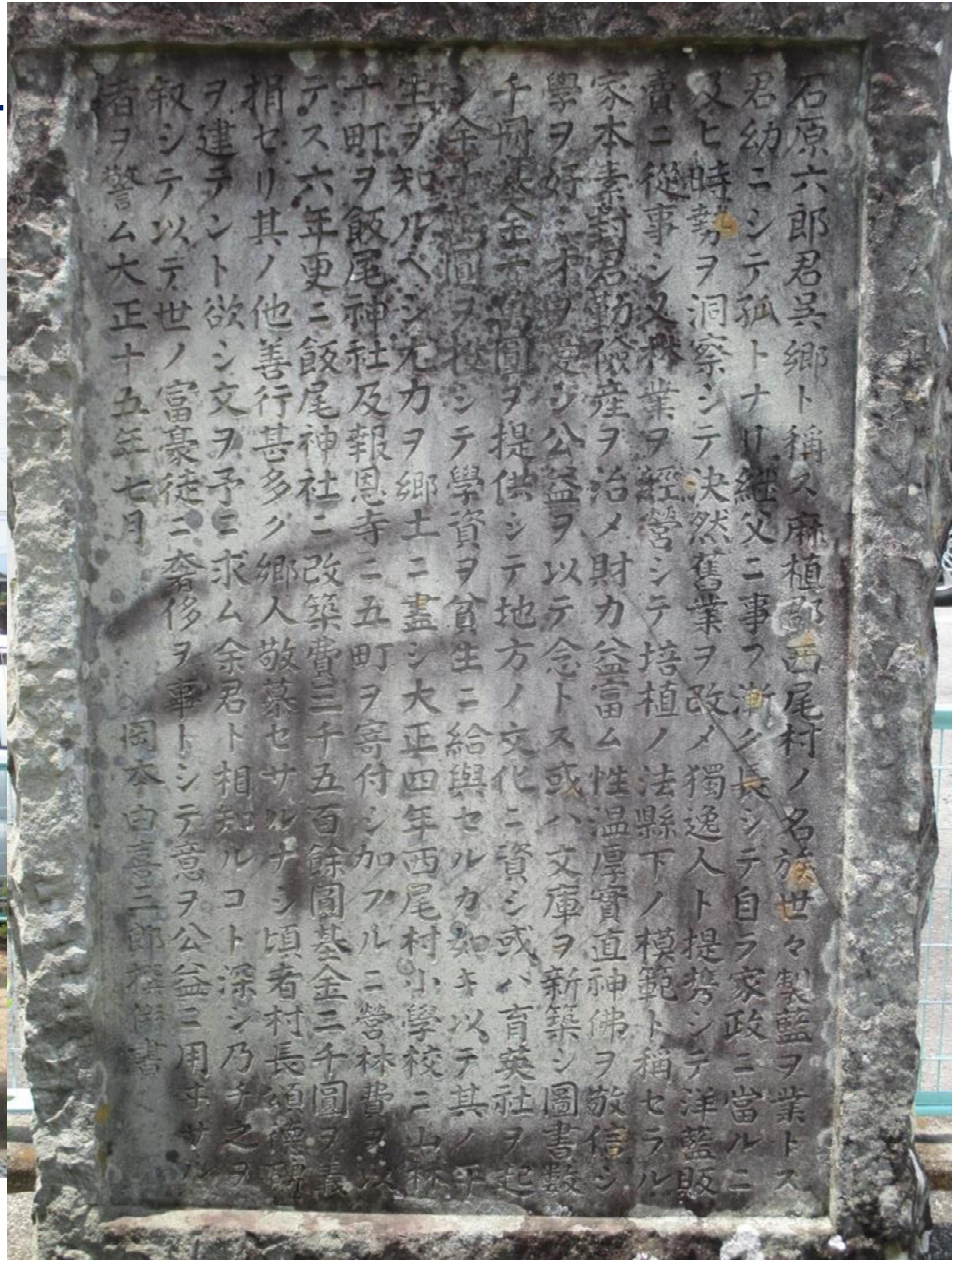 石原六郎君呉郷ト稱ス麻植郡西尾村ノ名族世々製藍ヲ業トス
君幼ニシテ孤トナリ継父ニ事フ漸ク長シテ自ラ家政ニ當ルニ
及ヒ時勢ヲ洞察シテ決然舊業ヲ改メ獨逸人ト提携シテ洋藍販
賣ニ從事シ又林業ヲ經營シテ培植ノ法縣下ノ模範ト稱セラル
家本素封君勤儉産ヲ治メ財力益富ム性温厚實直神佛ヲ敬信シ
學ヲ好ミ才ヲ愛シ公益ヲ以テ念トス或ハ文庫ヲ新築シ圖書數
千冊基金六圓ヲ提供シテ地方ノ文化ニ資シ或ハ育英社ヲ起
シ金十圓ヲ投シテ學資ヲ貧生ニ給與セルカ如キ以テ其ノ平
生ヲ知ルヘシ尤力ヲ郷土ニ盡シ大正四年西尾村小學校ニ山林
十町ヲ飯尾神社及報恩寺ニ五町ヲ寄付シ加フルニ營林費ヲ以
テス六年更ニ飯尾神社ニ改築費三千五百餘圓基金二千圓ヲ義
捐セリ其ノ他善行甚多ク郷人敬慕セサルナシ頃者村長頌德碑
ヲ建テント欲シ文ヲ予ニ求ム余君ト相知ルコト深シ乃チ之ヲ
叙シテ以テ世ノ富豪徒ニ奢侈ヲ事トシテ意ヲ公益ニ用ヰサル
者ヲ警ム大正十五年七月 岡本由喜三郎撰併書